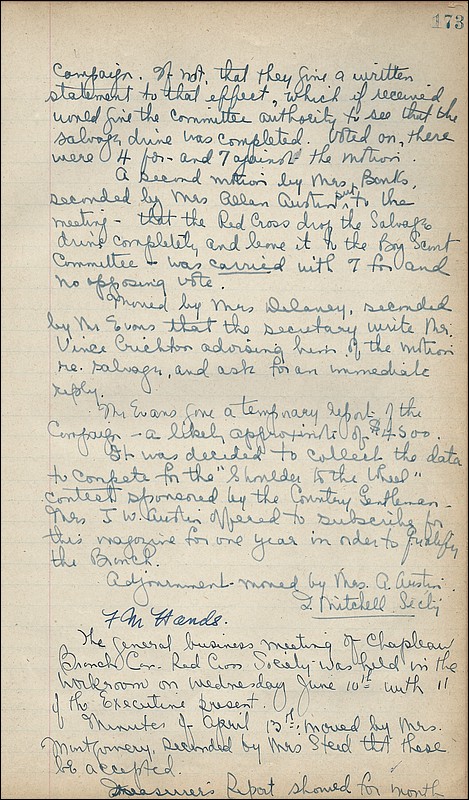 173
Campaign. If not, that they give a written
statement to that effect, which if received
would give the committee authority to see that the
salvage drive was completed. Voted on, there
were 4 for and 7 against the motion.
A second motion by Mrs. Banks,
seconded by Mrs Allan Austin put to the
meeting - that the Red Cross drop the Salvage
drive completely and leave it to the Boy Scout
Committee - was carried with 7 for and
no opposing vote.
Moved by Mrs Delaney, seconded
by Mr Evans that the secretary write Mr.
Vince Crichton advising him of the motion
re. salvage, and ask for an immediate
reply.
Mr Evans gave a temporary report of the
Campaign - a likely approximate of $4500.
It was decided to collect the data
to compete for the "Shoulder to the Wheel"
contest sponsored by the Country Gentleman -
Mrs J. W. Austin offered to subscribe for
this magazine for one year in order to qualify
the Branch.
Adjournment moved by Mrs. A. Austin.
Mitchell Sec'y
F M Hands.
The general business meeting of Chapleau
Branch Can. Red Cross Society was held in the
workroom on Wednesday June 10th with 11
of the Executive present.
Minutes of April 13th, moved by Mrs.
Montgomery, seconded by Mrs Steed that these
be accepted.
Treasurer's Report showed for month